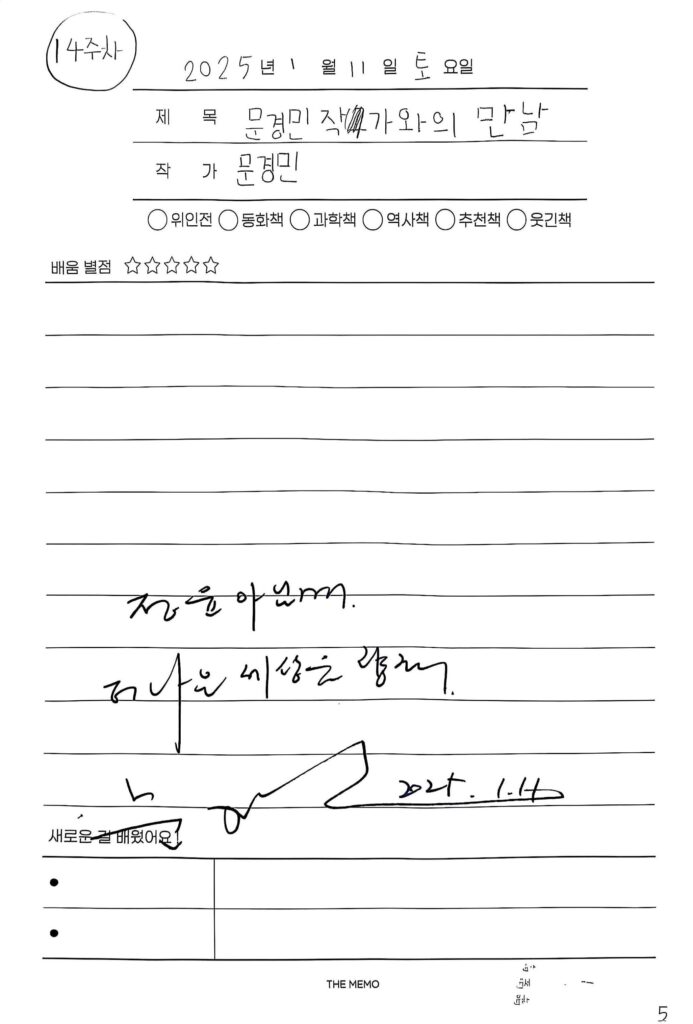 14주차
2025년 1월 11일 토요일
제 목 문경민 작가와의 만남
작 가 문경민
위인전 동화책 과학책 역사책 추천책 웃긴책
배움 별점 ☆☆☆☆☆
더 나은 세상을
새로운 걸 배웠어요!
THE MEMO
5